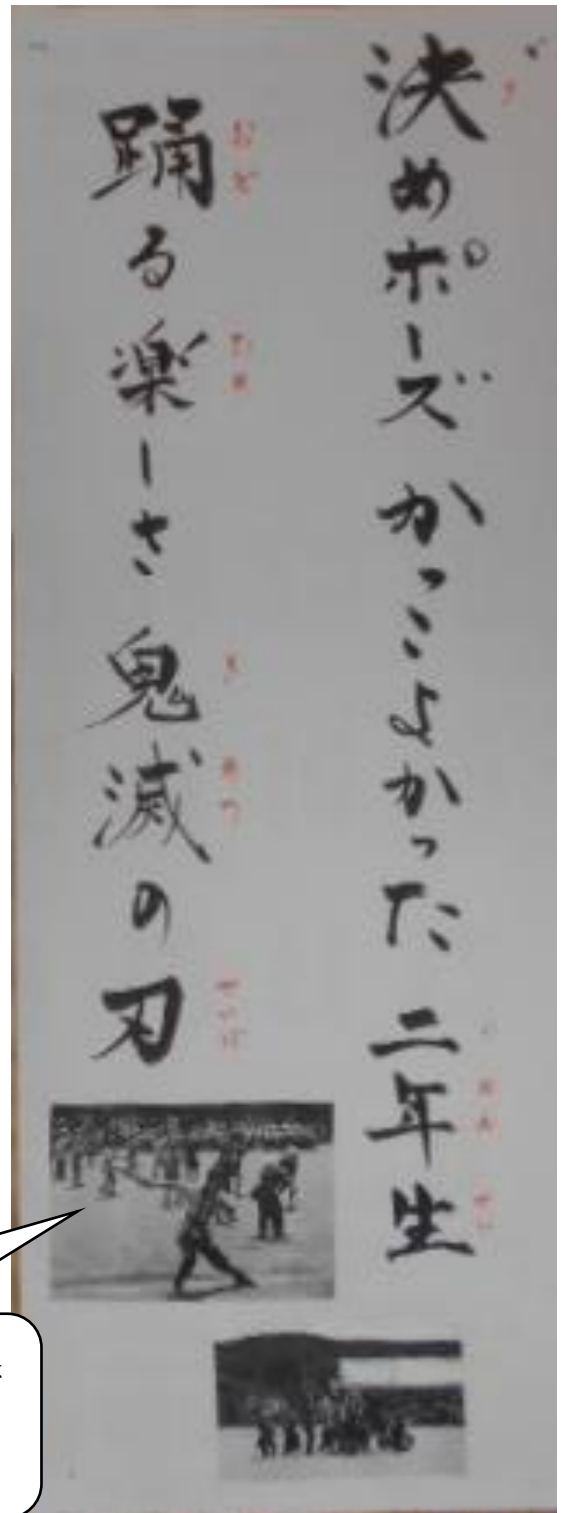 決めポーズ かっこよかった 二年生
踊る楽しさ 鬼滅の刃